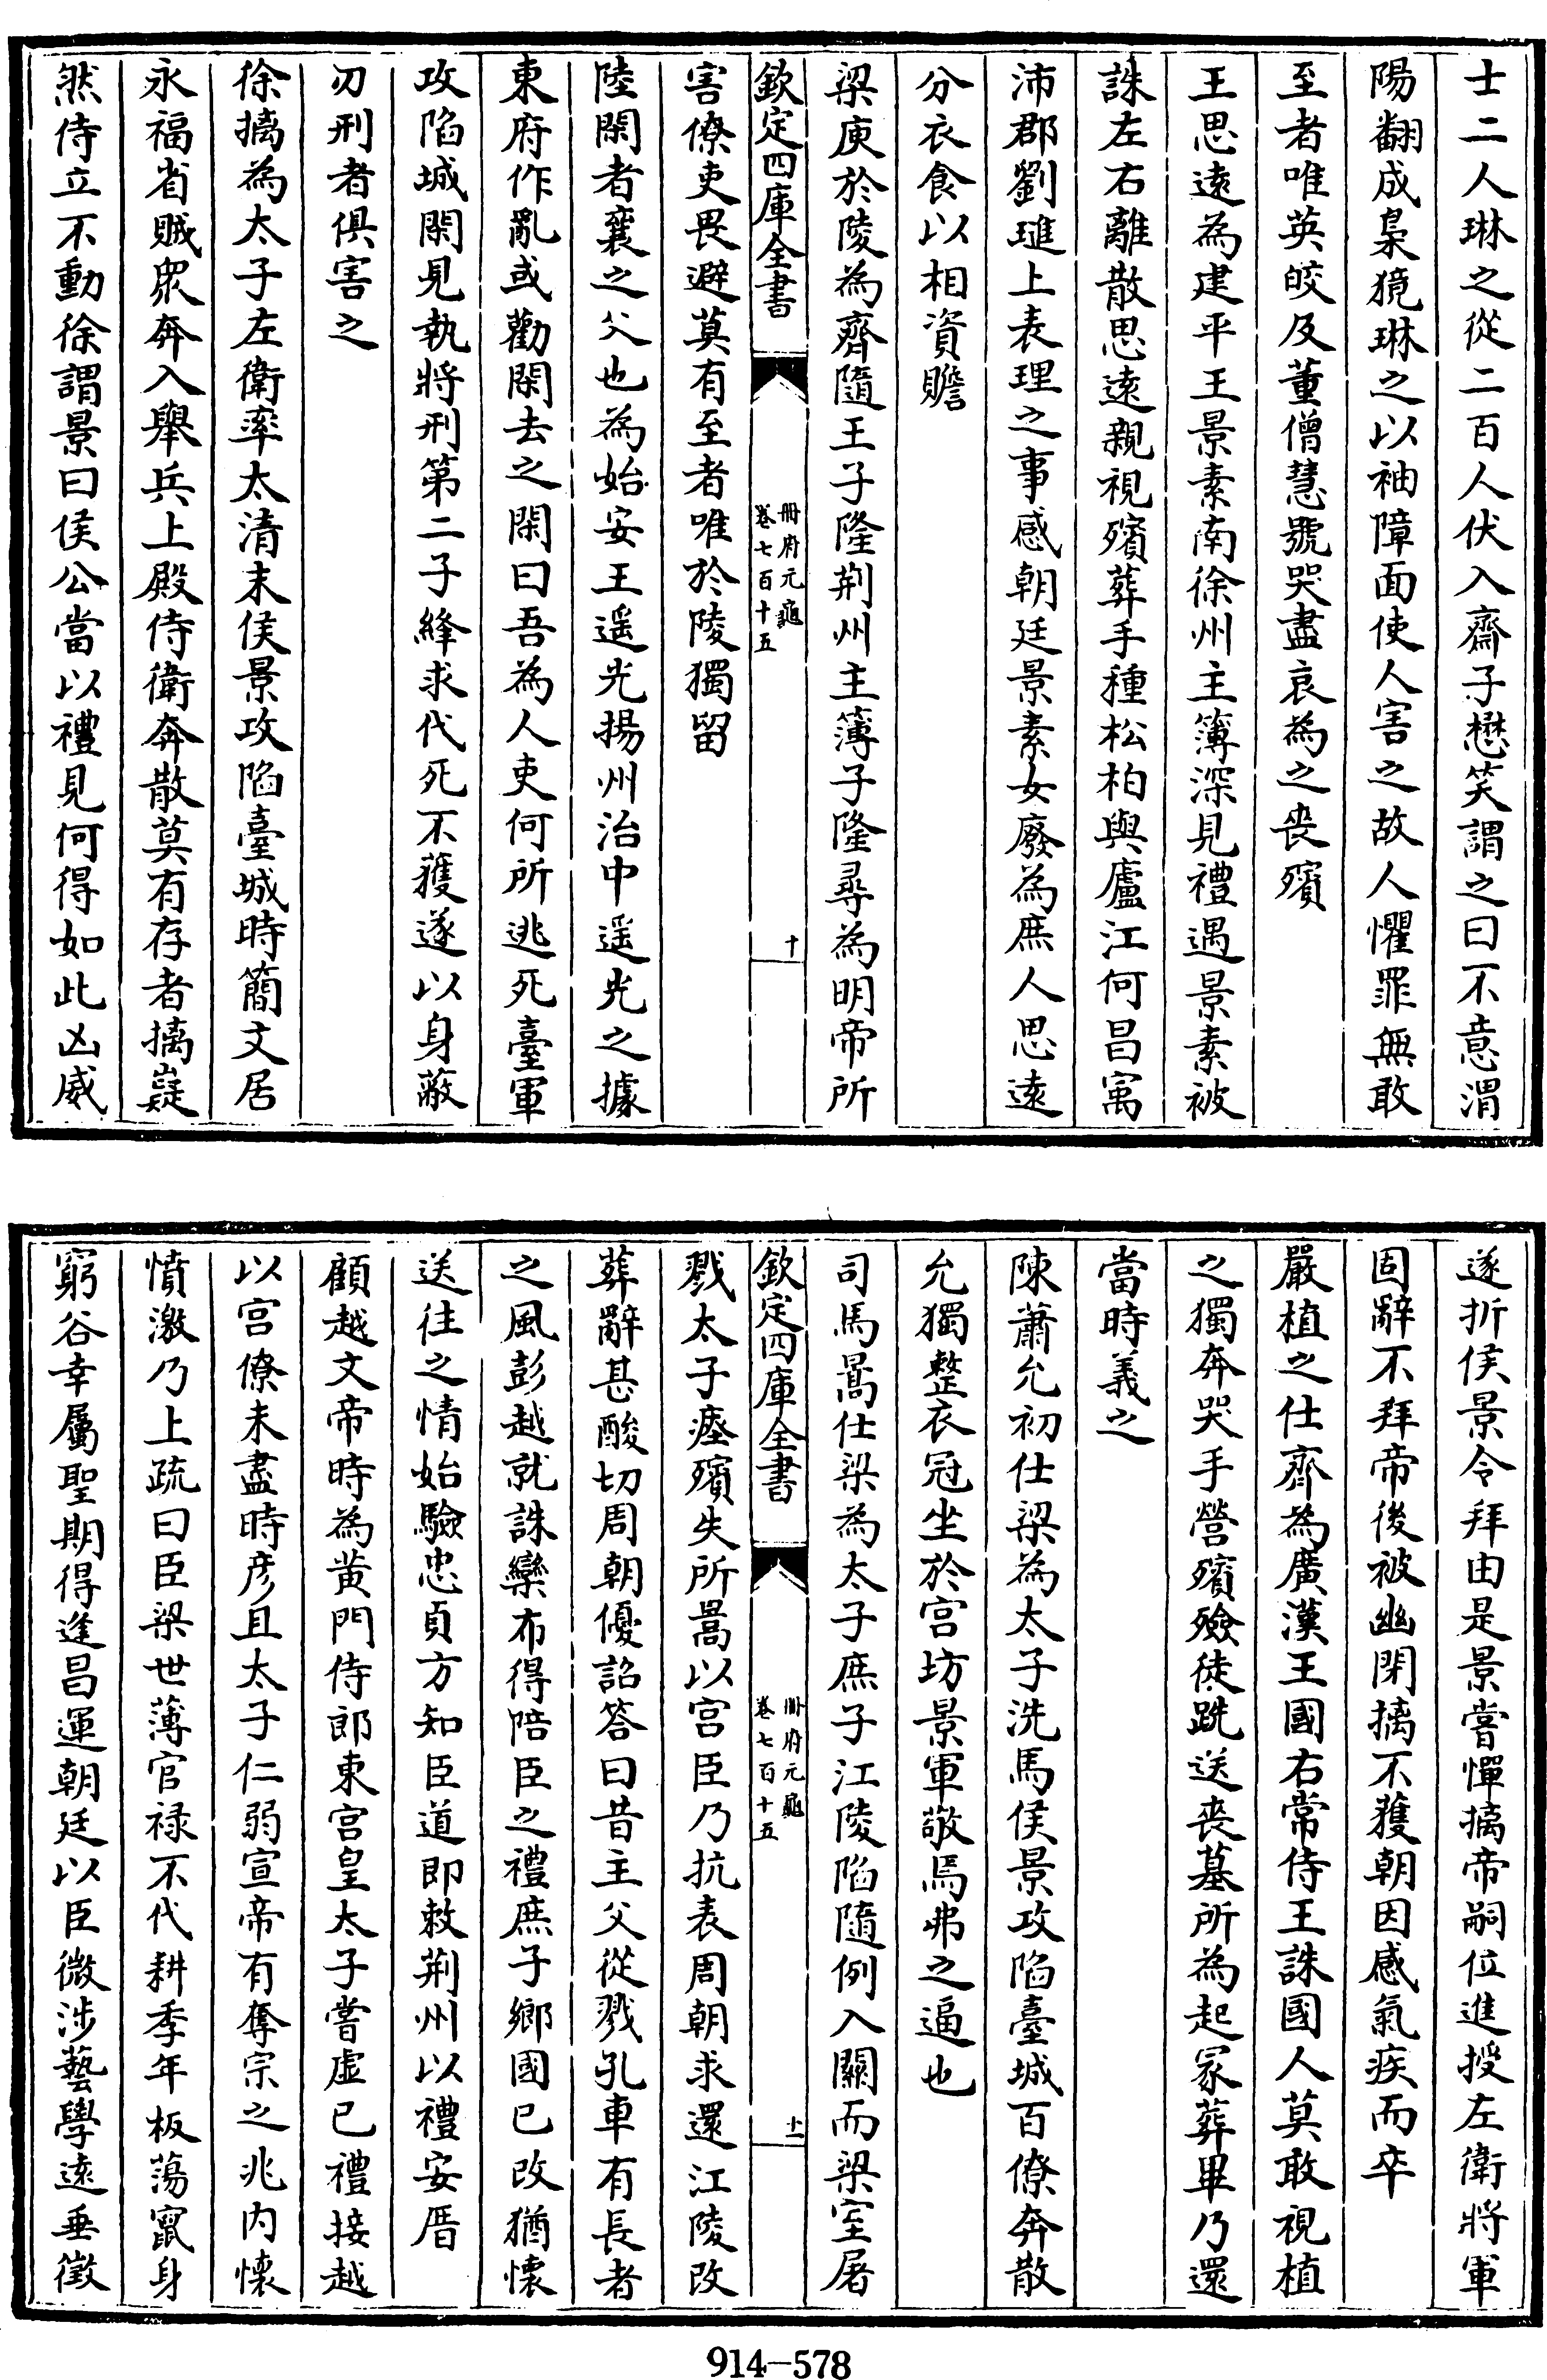 士二人琳之從二百人伏入齋子懋笑謂之曰不意渭
陽翻成梟獍琳之以袖障面使人害之故人懼罪無敢
至者唯英皎及董僧慧號哭盡哀為之丧殯
王思遠為建平王景素南徐州主簿深見禮遇景素被
誅左右離散思遠親視殯葬手種松柏與廬江何昌寓
沛郡劉璡上表理之事感朝廷景素女廢為庶人思遠
分衣食以相資贍
梁庾於陵為齊隨王子隆荆州主簿子隆尋為明帝所
欽定四庫全書
冊府元龜
卷七百十五
十
害僚吏畏避莫有至者唯於陵獨留
陸閑者襄之父也為始安王遥光揚州治中遥光之據
東府作亂或勸閑去之閑曰吾為人吏何所逃死臺軍
攻陷城閑見執將刑第二子絳求代死不獲遂以身蔽
刃刑者俱害之
徐摛為太子左衛率太清末侯景攻陷臺城時簡文居
永福省賊衆奔入舉兵上殿侍衛奔散莫有存者摛嶷
然侍立不動徐謂景曰侯公當以禮見何得如此凶威
遂折侯景令拜由是景嘗憚摛帝嗣位進授左衛將軍
固辭不拜帝後被幽閉摛不獲朝因感氣疾而卒
嚴植之仕齊為廣漢王國右常侍王誅國人莫敢視植
之獨奔哭手營殯殮徒跣送丧墓所為起冢葬畢乃還
當時義之
陳蕭允初仕梁為太子洗馬侯景攻陷臺城百僚奔散
允獨整衣冠坐於宫坊景軍敬焉弗之逼也
司馬暠仕梁為太子庶子江陵陷隨例入關而梁室屠
欽定四庫全書
冊府元龜
卷七百十五
十一
戮太子瘞殯失所暠以宫臣乃抗表周朝求還江陵改
葬辭甚酸切周朝優詔答曰昔主父從戮孔車有長者
之風彭越就誅欒布得陪臣之禮庶子鄉國已改猶懷
送往之情始驗忠貞方知臣道即敕荆州以禮安厝
顧越文帝時為黄門侍郎東宫皇太子嘗虚己禮接越
以宫僚未盡時彦且太子仁弱宣帝有奪宗之兆内懷
憤激乃上疏曰臣梁世薄官禄不代耕季年板蕩竄身
窮谷幸屬聖期得逢昌運朝廷以臣微涉藝學遠垂徵
914-578